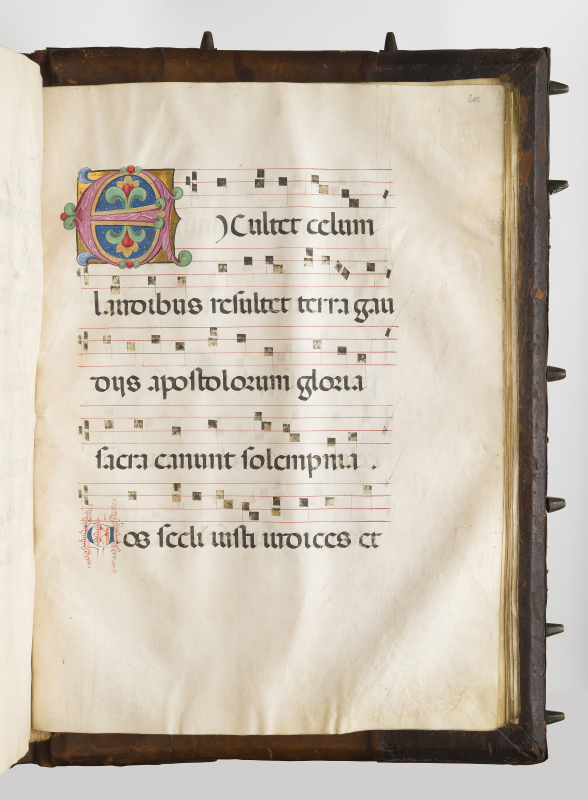 EXultet celum
laudibus resultet terra gau
dijs apostolorum gloria
sacra canunt solempnia .
Vos secli iusti iudices et